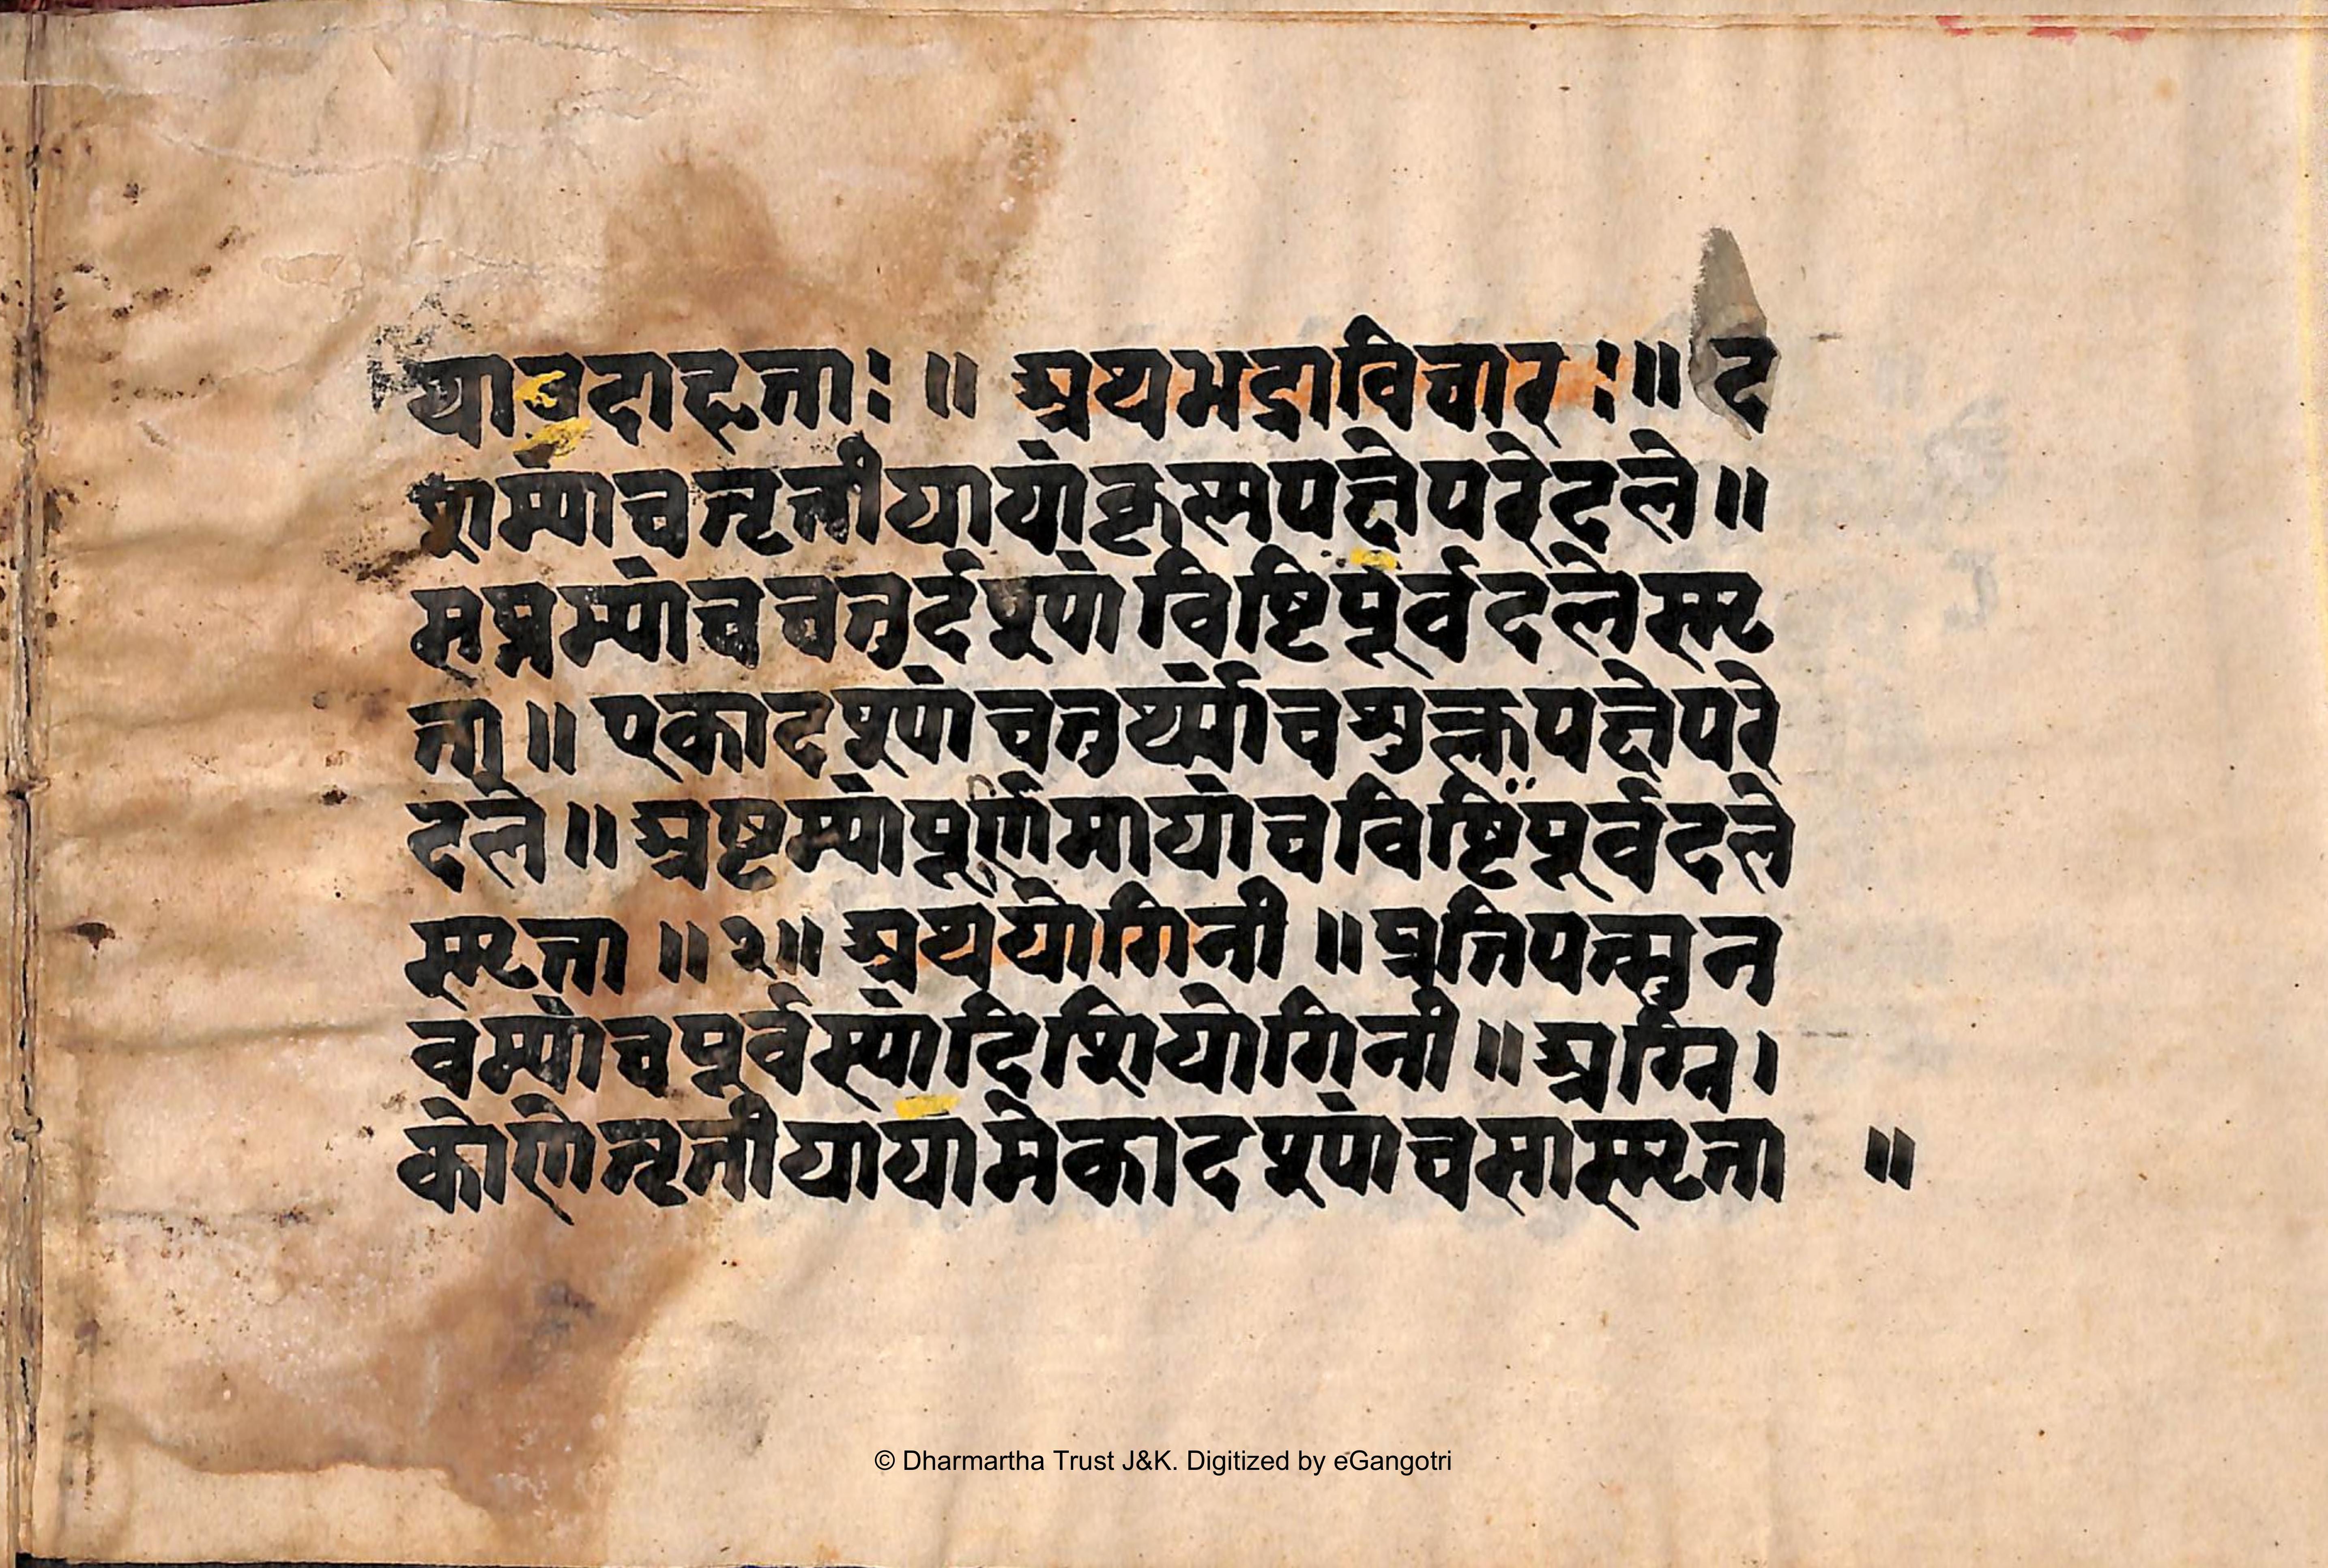 थाउदाहृताः ॥ अथभद्राविचारः ॥ द
शम्यांचतृतीयायांकृस्मपक्षेपरेदले ॥
सप्तम्यांचचतुर्दश्यां विष्टिपूर्वदलेस्मृ
ता ॥ एकादश्यांचतुर्थ्यांचशुक्लपक्षेपरे
दले ॥ अष्टम्यांपूर्णिमायांचविष्टिंपूर्वदले
स्मृता ॥ २॥ अथयोगिनी ॥ प्रतिपत्सुन
वम्यांचपूर्वस्यांदिशियोगिनी ॥ अग्नि।
कोणेतृतीयायामेकादश्यांचसास्मृता ॥
© Dharmartha Trust J&K. Digitized by eGangotri